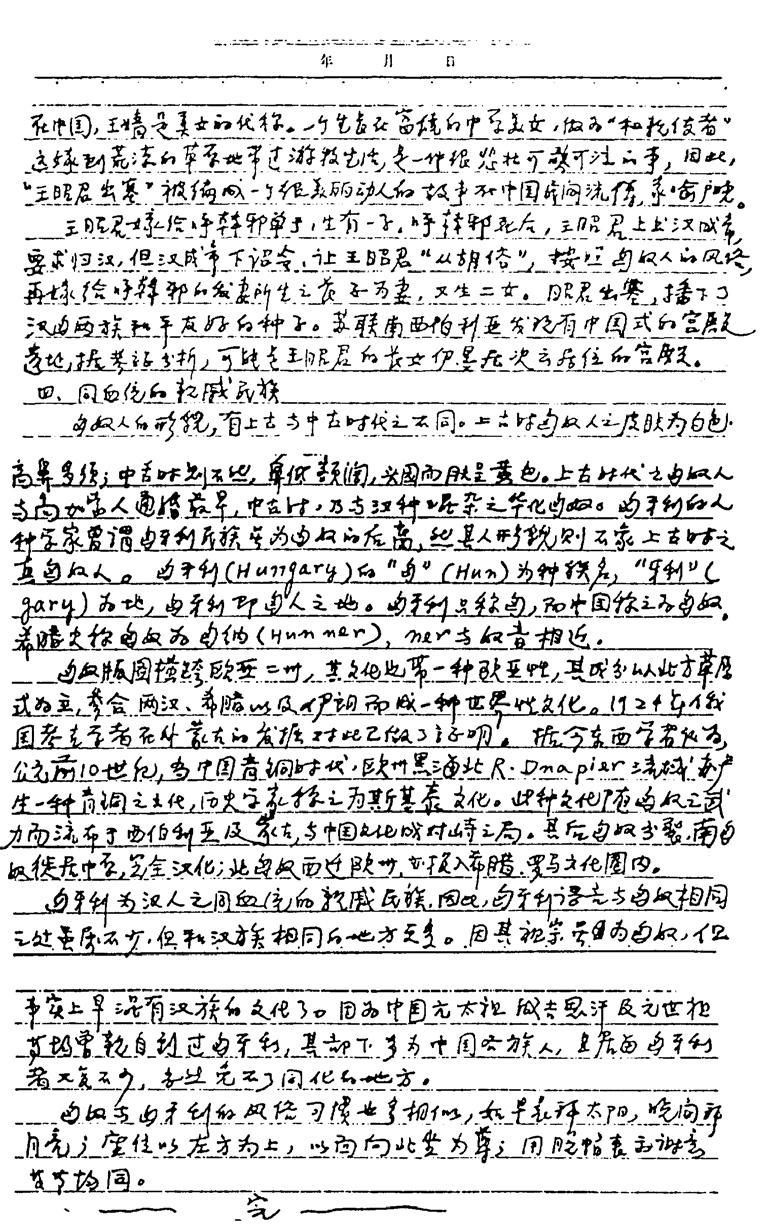 年 月 日
在中国，王嫱是美女的代称。一个生长在富饶的中原美女，做为“和亲使者”
远嫁到荒凉的草原地带过游牧生活，是一件很悲壮可歌可泣的事，因此，
“王昭君出塞”被编成一个很美丽动人的故事在中国民间流传，家喻户晓。
王昭君嫁给呼韩邪单于，生有一子。呼韩邪死后，王昭君上书汉成帝，
要求归汉，但汉成帝下诏令，让王昭君“从胡俗”，按照匈奴人的风俗，
再嫁给呼韩邪的发妻所生之长子为妻，又生二女。昭君出塞，播下了
汉匈两族和平友好的种子。苏联南西伯利亚发现有中国式的宫殿
遗址，据考证分析，可能是王昭君的长女伊墨居次云居住的宫殿。
四、同血统的亲戚民族
匈奴人的形貌，有上古与中古时代之不同。上古时匈奴人之皮肤为白色，
高鼻多须；中古时则不然，鼻低额阔，头圆而肤呈黄色。上古时代之匈奴人
与高加索人通婚最早，中古时，乃与汉种混杂之华化匈奴。匈牙利的人
种学家曾谓匈牙利民族虽为匈奴的后裔，然其人形貌则不象上古时之
真匈奴人。匈牙利(Hungary)的“匈”(Hun)为种族名，“牙利”(
gary)为地，匈牙利即匈人之地。匈牙利只称匈，而中国称之为匈奴。
希腊史称匈奴为匈纳(Hunner)，ner与奴音相近。
匈奴版图横跨欧亚二州，其文化也带一种欧亚性，其成分以北方草原
式为主，参合两汉、希腊以及伊朗而成一种世界性文化。1924年俄
国考古学者在外蒙古的发掘对此已做了证明。据今东西学者化为，
公元前10世纪，当中国青铜时代，欧州黑海北R·Dnapier流域产
生一种青铜之文化，历史学家称之为斯基泰文化。此种文化随匈奴之武
力而流布于西伯利亚及蒙古，与中国文化成对峙之局。其后匈奴分裂，南匈
奴徙居中原，完全汉化；北匈奴西迁欧州，亦接入希腊、罗马文化圈内。
匈牙利为汉人之同血统的亲戚民族，因此，匈牙利语言与匈奴相同
之处虽属不少，但和汉族相同的地方更多。因其祖宗虽为匈奴，但
事实上早混有汉族的文化了。因为中国元太祖成吉思汗及元世祖
等均曾亲自到过匈牙利，其部下多为中国各族人，且居留匈牙利
者又复不少，当然免不了同化的地方。
匈奴与匈牙利的风俗习惯也多相似，如早起拜太阳，晚间拜
月亮；座位以左方为上，以面向北坐为尊；用脱帽表示谢意
等等均同。
完